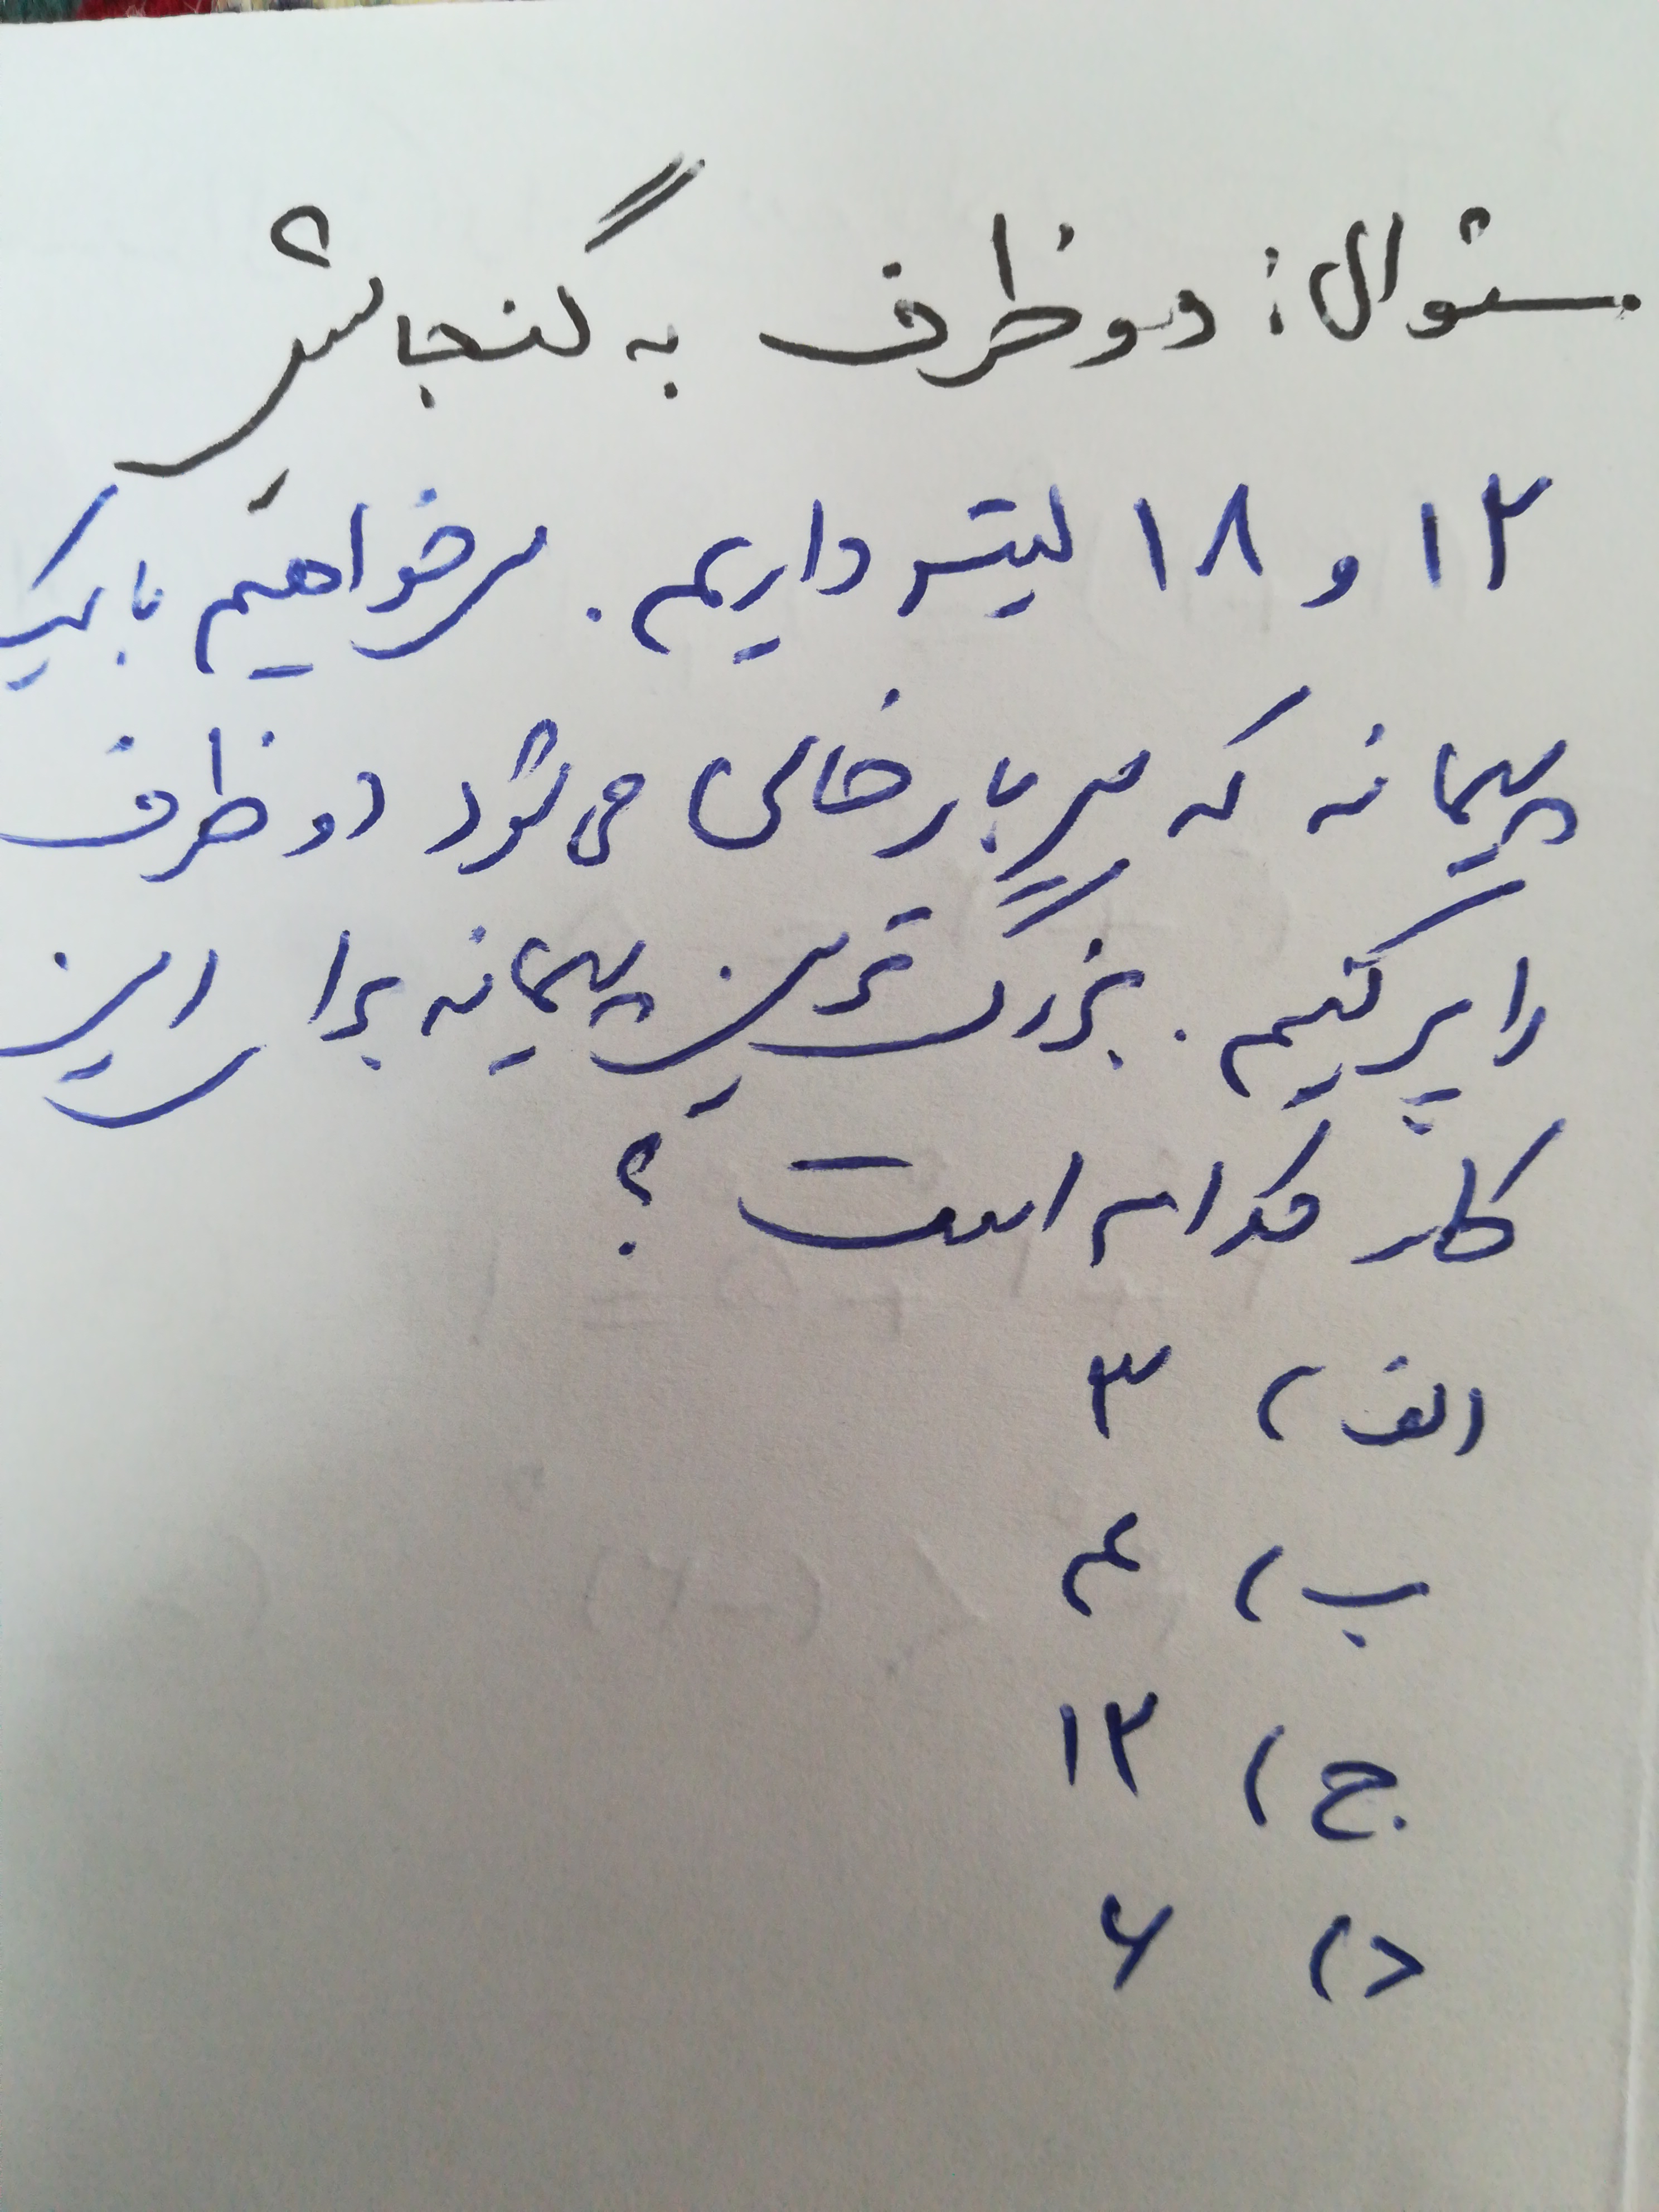 سئوال: دو ظرف به گنجایش
۱۲ و ۱۸ لیتر داریم. می‌خواهیم با یک
پیمانه که هر بار خالی می‌شود دو ظرف
را پر کنیم. بزرگ‌ترین پیمانه برای این
کار کدام است؟
الف) ۳
ب) ۴
ج) ۱۲
د) ۶